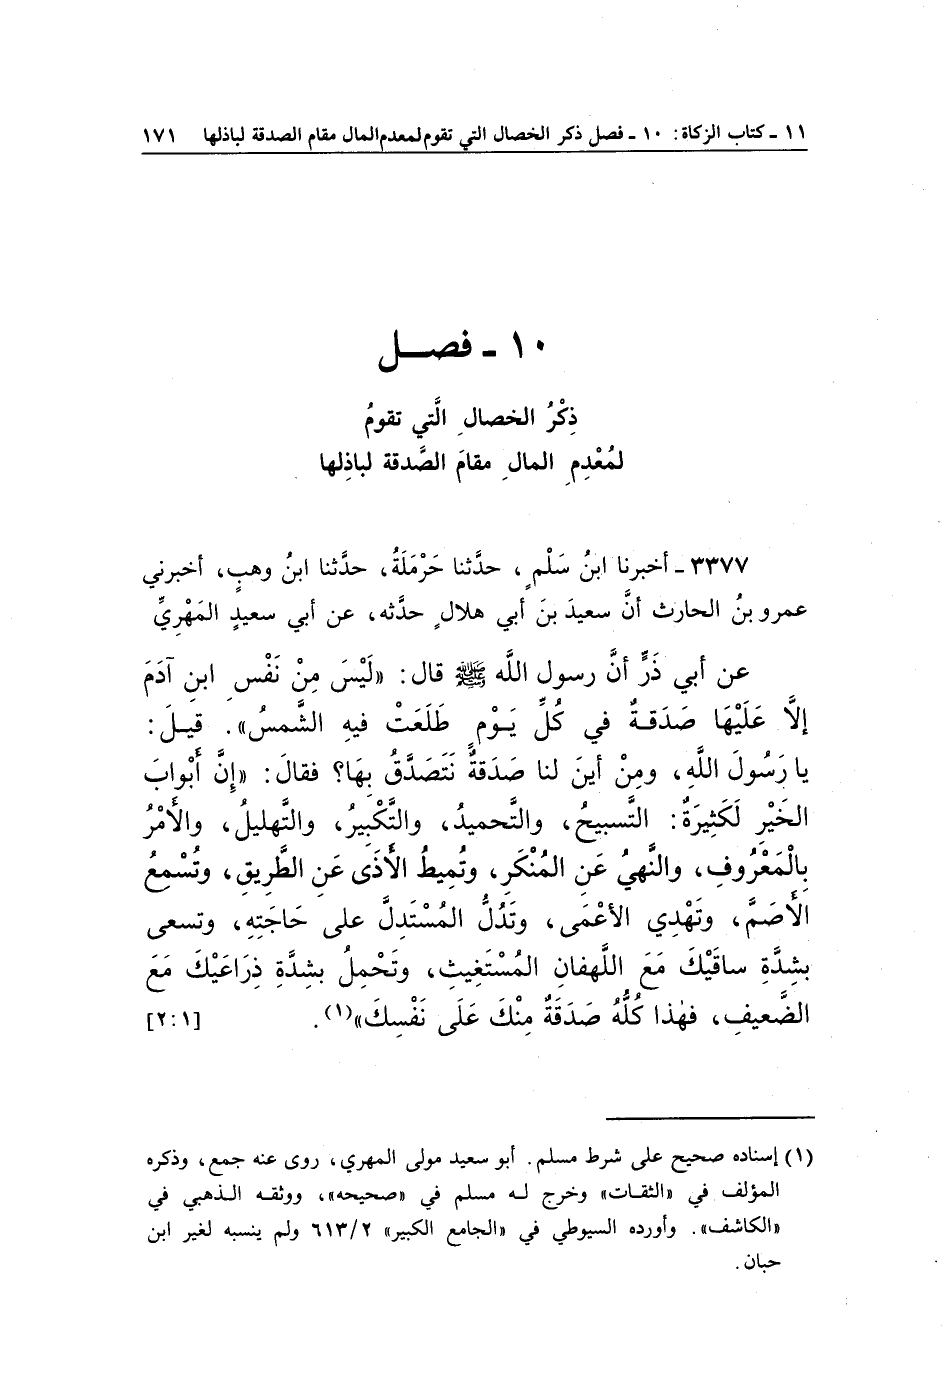 ١١ ـ كتاب الزكاة: ١٠ ـ فصل ذكر الخصال التي تقوم لمعدم المال مقام الصدقة لباذلها ١٧١
١٠ ـ فصـــل
ذِكْرُ الخصالِ الَّتي تقومُ
لمُعْدِمِ المالِ مقامَ الصَّدقة لباذِلها
٣٣٧٧ ـ أخبرنا ابنُ سَلْمٍ، حدَّثنا حَرْمَلَةُ، حدَّثنا ابنُ وهبٍ، أخبرني
عمرو بنُ الحارث أنَّ سعيدَ بنَ أبي هلالٍ حدَّثه، عن أبي سعيدٍ المَهْرِيِّ
عن أبي ذَرٍّ أنَّ رسول اللَّه ﷺ قال: «لَيْسَ مِنْ نَفْسِ ابنِ آدَمَ
إلَّا عَلَيْهَا صَدَقـةٌ في كُلِّ يَـوْمٍ طَلَعَتْ فيهِ الشَّمسُ». قيـلَ:
يا رَسُولَ اللَّهِ، ومِنْ أينَ لنا صَدَقةٌ نَتَصَدَّقُ بِهَا؟ فقالَ: «إنَّ أَبْوابَ
الخَيْرِ لَكَثِيرَةٌ: التَّسبيحُ، والتَّحميدُ، والتَّكْبِيرُ، والتَّهليلُ، والأَمْرُ
بِالْمَعْرُوفِ، والنَّهيُ عَنِ المُنْكَرِ، وتُمِيطُ الأَذَى عَنِ الطَّرِيقِ، وتُسْمِعُ
الأَصَمَّ، وتَهْدِي الأعْمَى، وتَدُلُّ المُسْتَدِلَّ على حَاجَتِهِ، وتسعى
بشِدَّةِ ساقَيْكَ مَعَ اللَّهفانِ المُسْتَغِيثِ، وتَحْمِلُ بشِدَّةِ ذِرَاعَيْكَ مَعَ
الضَّعيفِ، فهٰذا كُلُّهُ صَدَقَةٌ مِنْكَ عَلَى نَفْسِكَ»(١). [٢:١]
(١) إسناده صحيح على شرط مسلم. أبو سعيد مولى المهري، روى عنه جمع، وذكره
المؤلف في «الثقات» وخرج لـه مسلم في «صحيحه»، ووثقـه الـذهبي في
«الكاشف». وأورده السيوطي في «الجامع الكبير» ٦١٣/٢ ولم ينسبه لغير ابن
حبان.